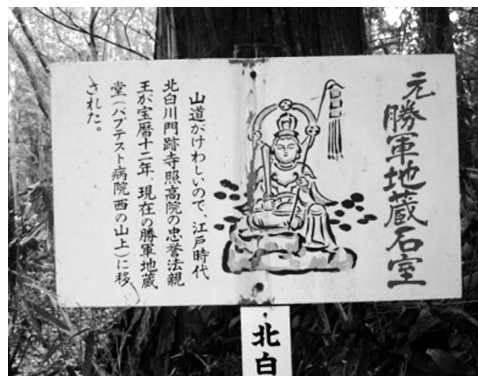 元勝軍地蔵石室
山道がけわしいので、江戸時代
北白川門跡寺照高院の忠誉法親
王が宝暦十二年、現在の勝軍地蔵
堂（バプテスト病院西の山上）に移
された。
北白